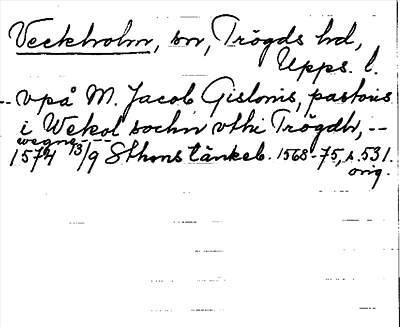 Veckholm, sn, Trögds hd,
Upps. l.
-- vpå M. Jacob Gislonis, pastoris
i Wekol sochn vthi Trögdh, --
wegne ---
1574 13/9 Sthms tänkeb. 1568-75, s. 531.
orig.